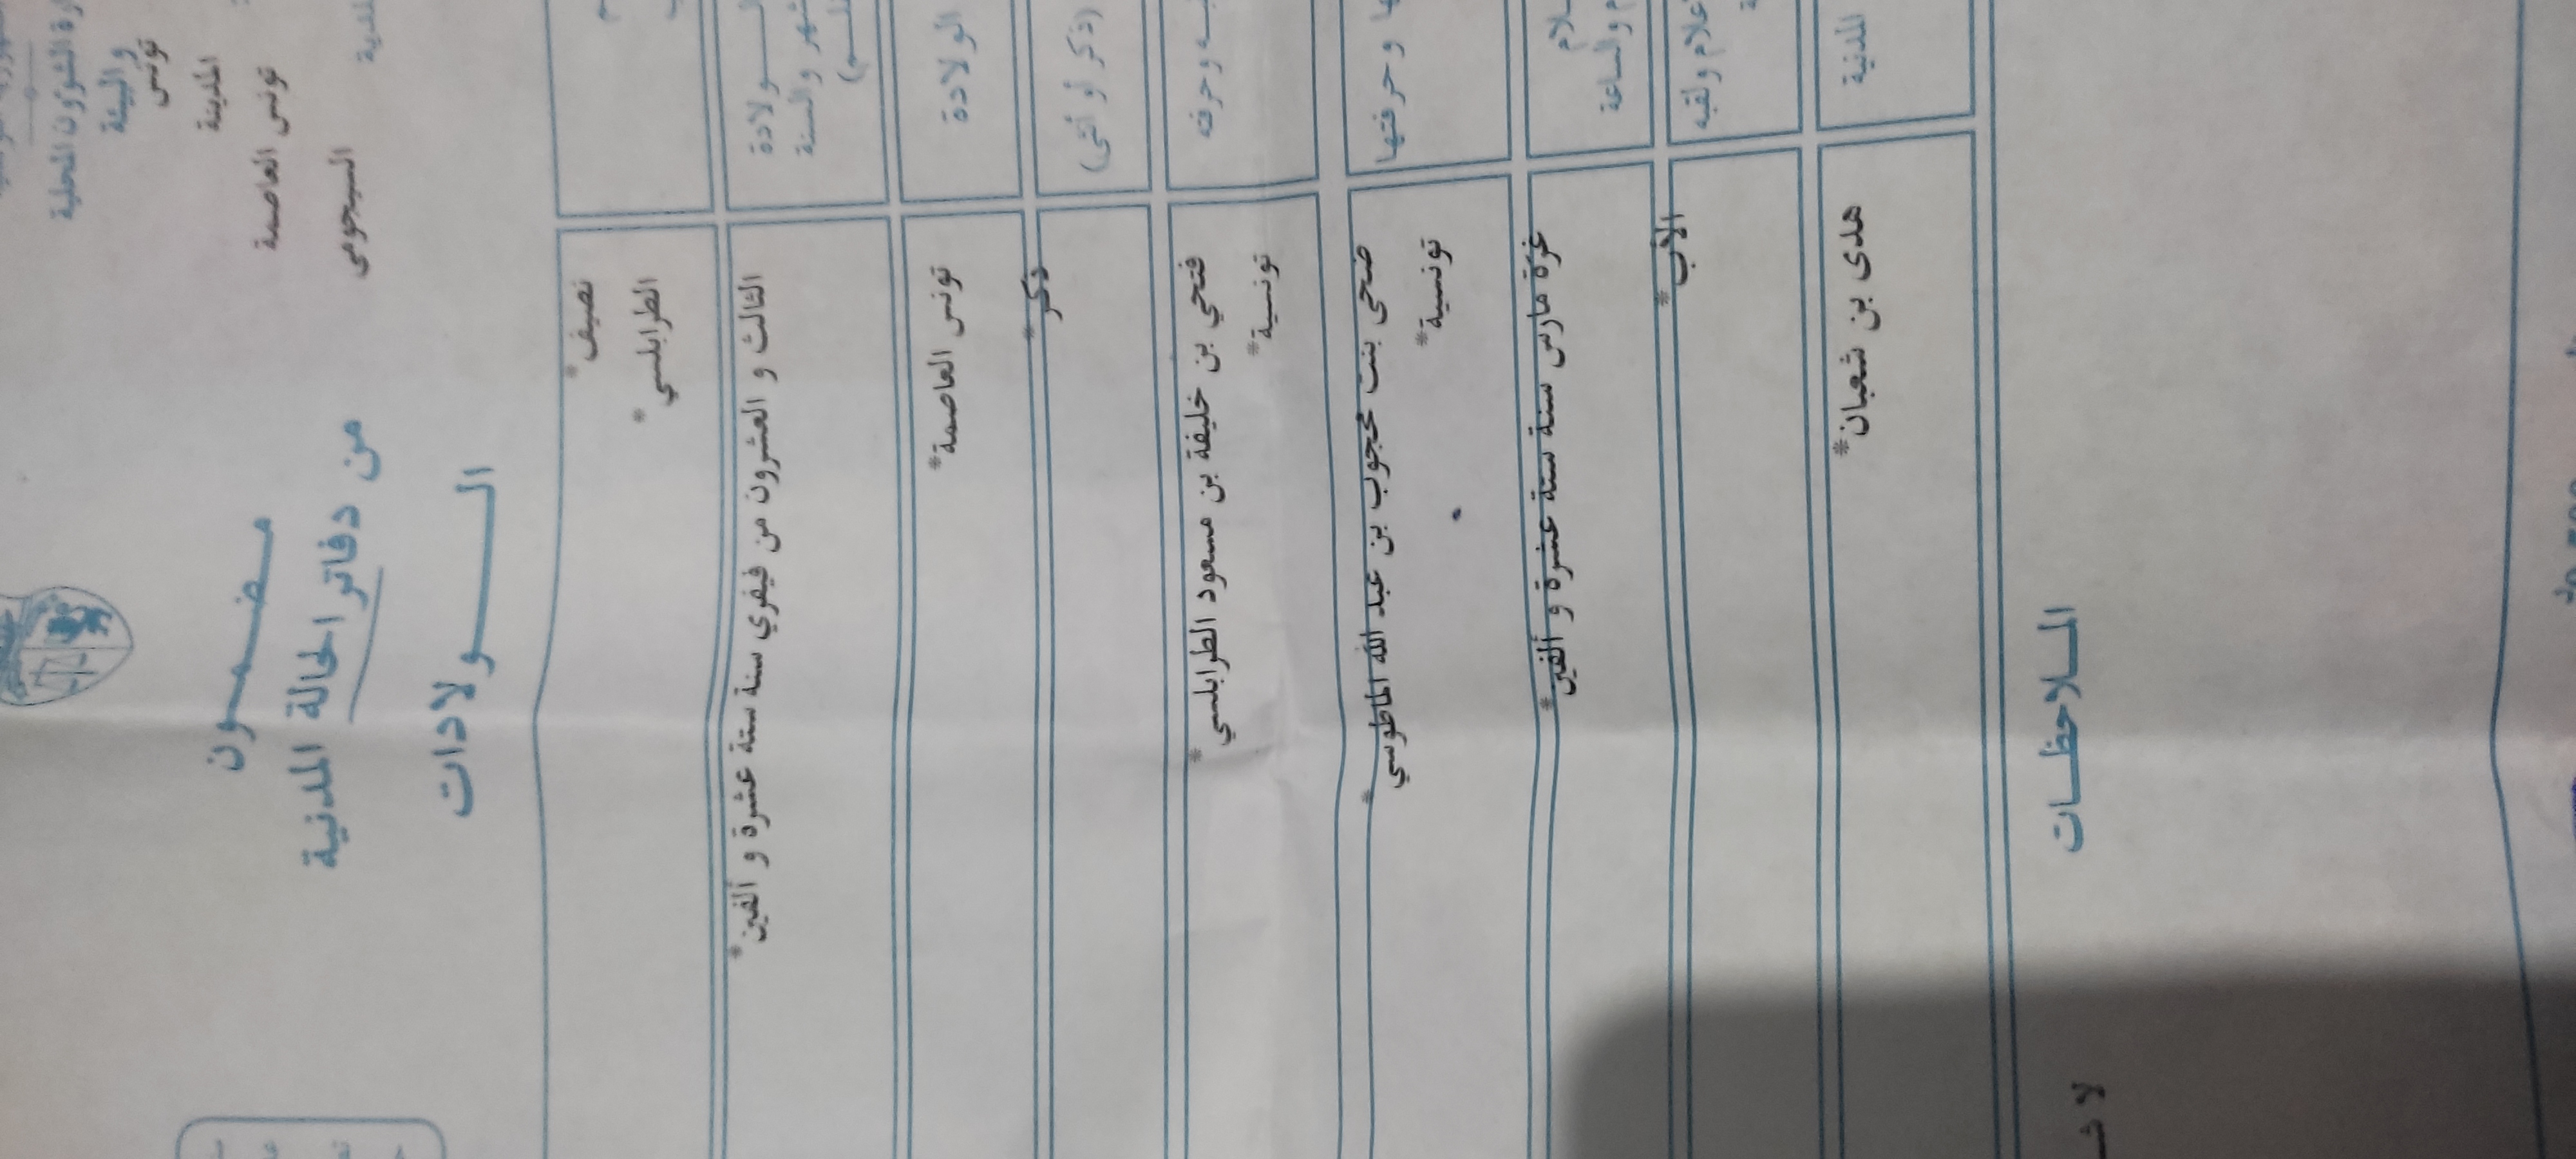 الشؤون المحلية
والبيئة
تونس
المدينة
تونس العاصمة
السيجومي
مضمون
من دفاتر الحالة المدنية
الولادات
نصيف*
الطرابلسي*
الولادة
والسنة
الثالث و العشرون من فيفري سنة ستة عشرة و ألفين*
الولادة
تونس العاصمة*
(ذكر أو أنثى)
ذكر*
وحرفته
فتحي بن خليفة بن مسعود الطرابلسي*
تونسية*
وحرفتها
ضحى بنت محجوب بن عبد الله الماطوسي*
تونسية*
والساعة
غرة مارس سنة ستة عشرة و ألفين*
ولقبه
الأب*
المدنية
هدى بن شعبان*
الملاحظات